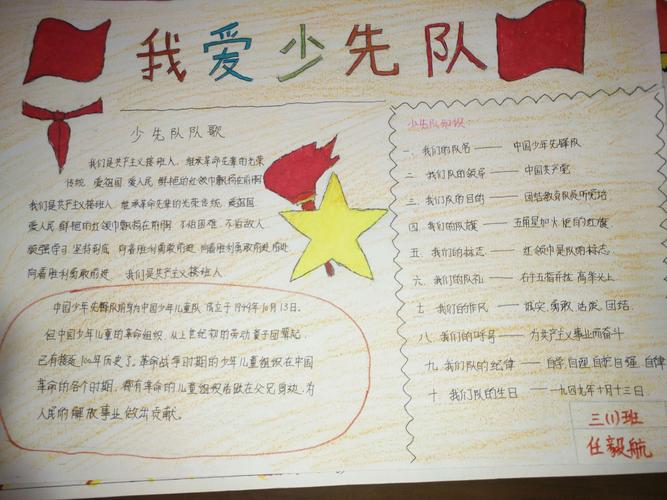 我爱少先队
少先队队歌
我们是共产主义接班人，继承革命先辈的光荣
传统，爱祖国 爱人民 鲜艳的红领巾飘扬在前胸
我们是共产主义接班人，继承革命先辈的光荣传统，爱祖国
爱人民 鲜艳的红领巾飘扬在前胸 不怕困难 不怕敌人
顽强学习 坚持到底 向着胜利勇敢前进 向着胜利勇敢前进
向着胜利勇敢前进 我们是共产主义接班人
中国少年先锋队前身为中国少年儿童队 成立于1949年10月13日。
但中国少年儿童的革命组织，从上世纪初的劳动童子团算起，
已有接近100年历史了。革命战争时期的少年儿童组织在中国
革命的各个时期，都有革命的儿童组织活跃在父兄身边，为
人民的解放事业做出贡献。
少先队知识：
一、我们的队名——中国少年先锋队
二、我们队的领导——中国共产党
三、我们队的目的——团结教育队员听党话
四、我们的队旗——五角星加火炬的红旗
五、我们的标志——红领巾是队的标志
六、我们的队礼——右手五指并拢 高举头上
七、我们的作风——诚实、勇敢、活泼、团结.
八、我们的呼号——为共产主义事业而奋斗
九、我们队的纪律——自学 自理 自护 自强 自律
十、我们队的生日——一九四九年十月十三日
三(1)班
任毅航